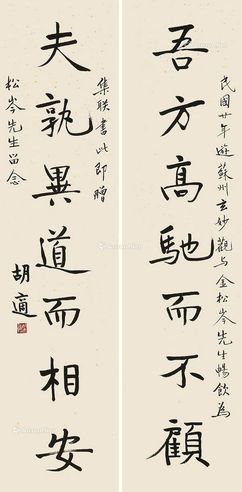 民國廿年遊蘇州玄妙觀与金松岑先生暢飲為
吾方高馳而不顧
集联書此即贈
夫孰異道而相安
松岑先生留念
胡適